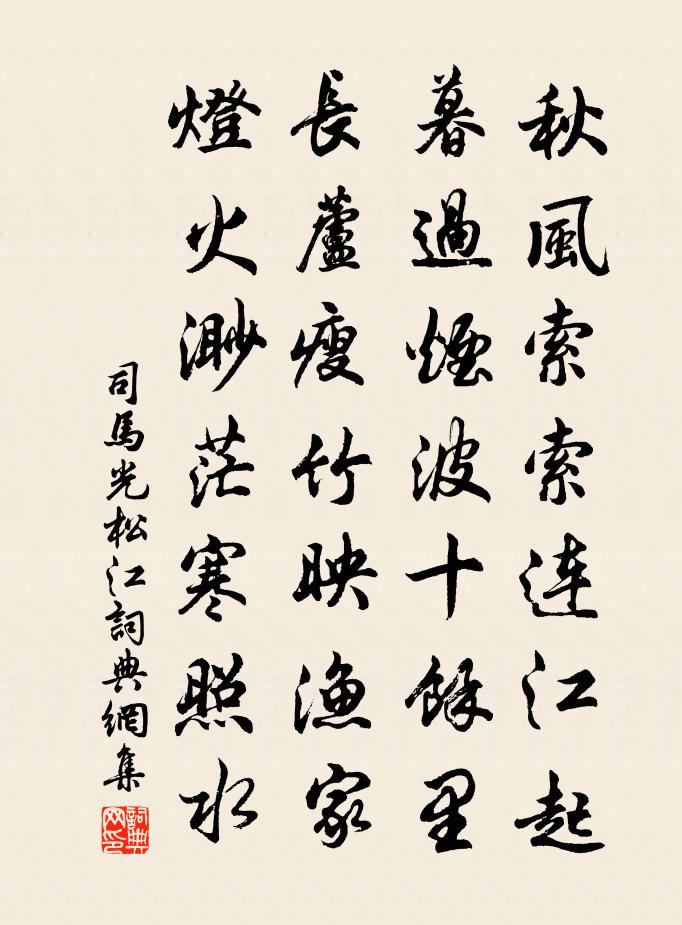 秋風索索連江起
暮過煙波十餘里
長蘆瘦竹映漁家
燈火渺茫寒照水
司馬光松江詞典網集
詞典
网印